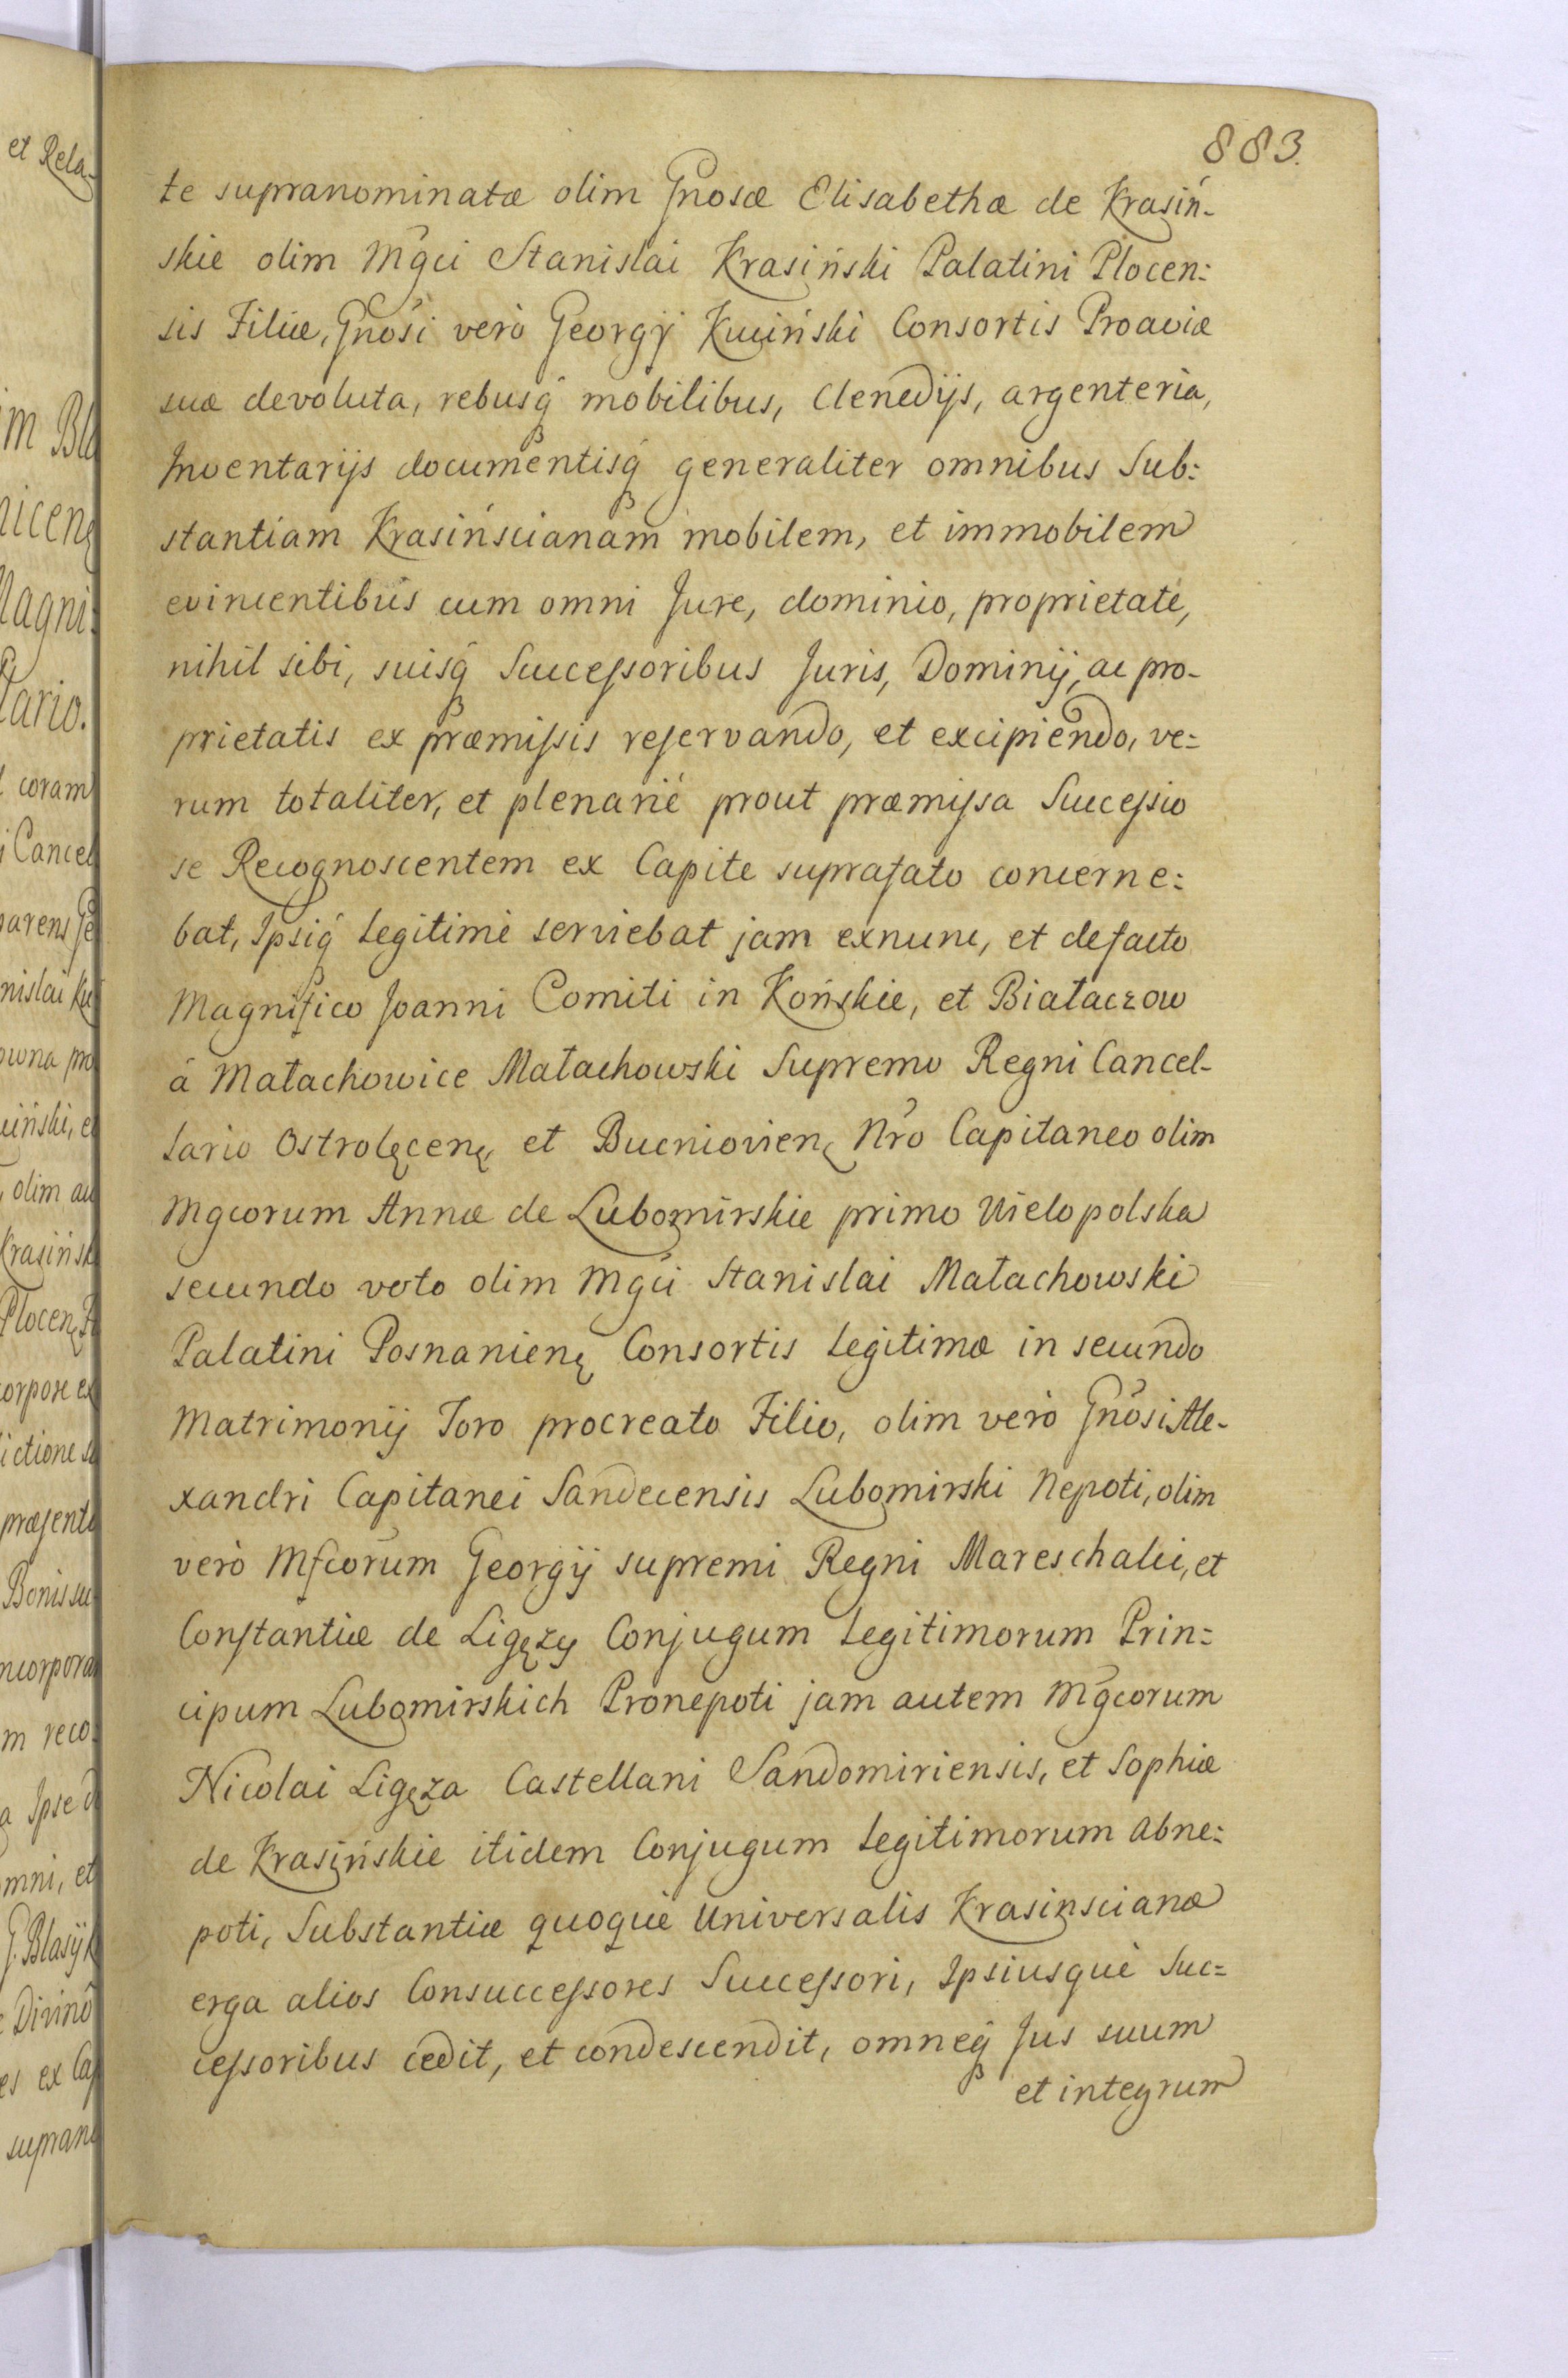 883.
te supranominatæ olim Gnosæ Elisabethæ de Krasiń-
skie olim Mgci Stanislai Krasiński Palatini Plocen:
sis Filiæ, Gnosi verò Georgij Kuciński Consortis Proaviæ
suæ devoluta, rebusq́ mobilibus, Clenodijs, argenteria,
Inventarijs documentisq́ generaliter omnibus Sub:
stantiam Krasińscianam mobilem, et immobilem
evincentibus cum omni Jure, dominio, proprietate,
nihil sibi, suisq́ Successoribus Juris, Dominij, ac pro-
prietatis ex præmissis reservando, et excipiendo, ve:
rum totaliter, et plenarié prout præmissa Successio
se Recognoscentem ex Capite suprafato concerne:
bat, Ipsiq́ legitimè serviebat jam exnunc, et defacto
Magnifico Joanni Comiti in Końskie, et Białaczow
á Małachowice Małachowski Supremo Regni Cancel-
lario Ostrolęcenę, et Bucniovienę Nro Capitaneo olim
Mgcorum Annæ de Lubomirskie primo Wielopolska
secundo voto olim Mgci Stanislai Małachowski
Palatini Posnanienę Consortis legitimæ in secundo
Matrimonij Toro procreato Filio, olim verò Gnosi Ale-
xandri Capitanei Sandecensis Lubomirski Nepoti, olim
verò Mfcorum Georgij supremi Regni Mareschalci, et
Constantiæ de Ligęzy Conjugum legitimorum Prin:
cipum Lubomirskich Pronepoti jam autem Mgcorum
Nicolai Ligęza Castellani Sandomiriensis, et Sophiæ
de Krasińskie itidem Conjugum legitimorum abne:
poti, Substantiæ quoque Universalis Krasinscianæ
erga alios Consuccessores Successori, Ipsiusque Suc:
cessoribus cedit, et condescendit, omneq́ Jus suum
et integrum